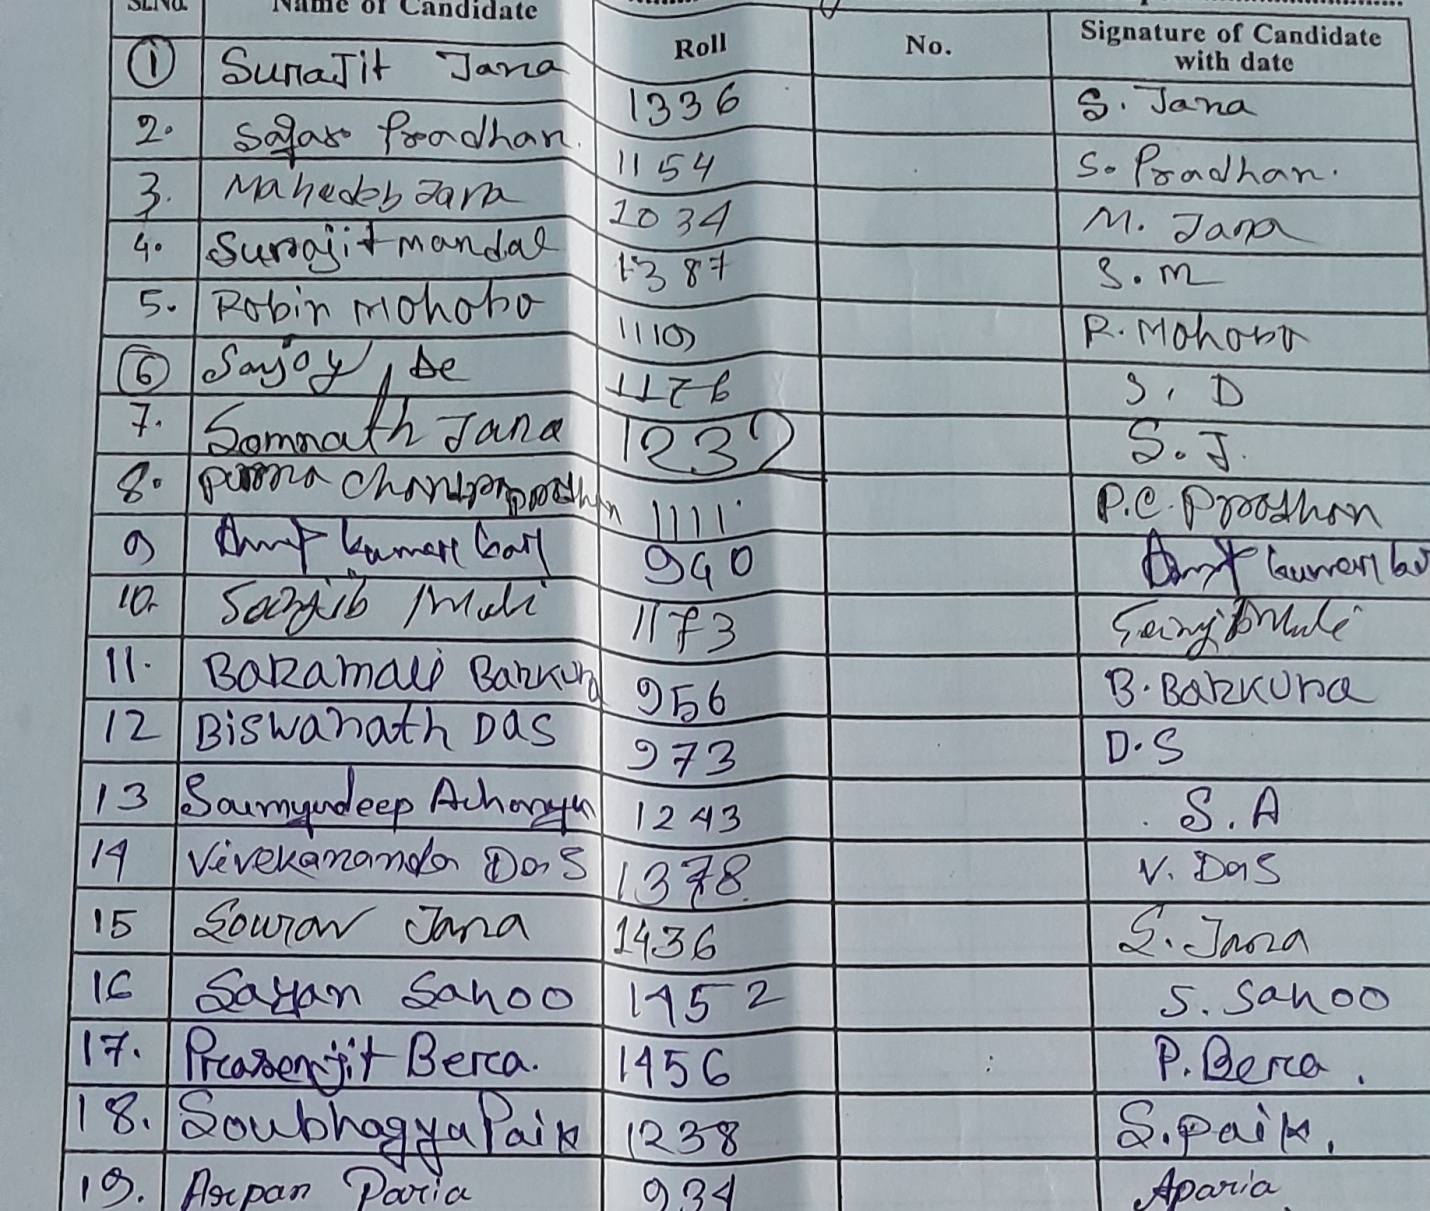 Sl.No. Name of Candidate Roll No. Signature of Candidate with date
1 Surajit Jana 1336 S. Jana
2. Sagar Pradhan. 1154 S. Pradhan.
3. Mahadeb Jana 1034 M. Jana
4. Surajit mandal 1387 S. m
5. Robin Mohobo 1110 R. Mohobo
6 Sanjoy De 1176 S. D
7. Somnath Jana 1232 S. J.
8. 1111 P.C. Prodhan
9 kumar 940 kumar
10. Sanjib 1173
11. Banamali Barkuna 956 B. Barkuna
12 Biswanath Das 973 D.S
13 Saumyadeep Acharya 1243 S. A
14 Vivekananda Das 1378 V. Das
15 Sourav Jana 1436 S. Jana
16 Sayan Sahoo 1452 S. Sahoo
17. Prasenjit Bera. 1456 P. Bera.
18. Soubhagya Paik 1238 S. paik.
19. Arpan Paria 934 Aparia